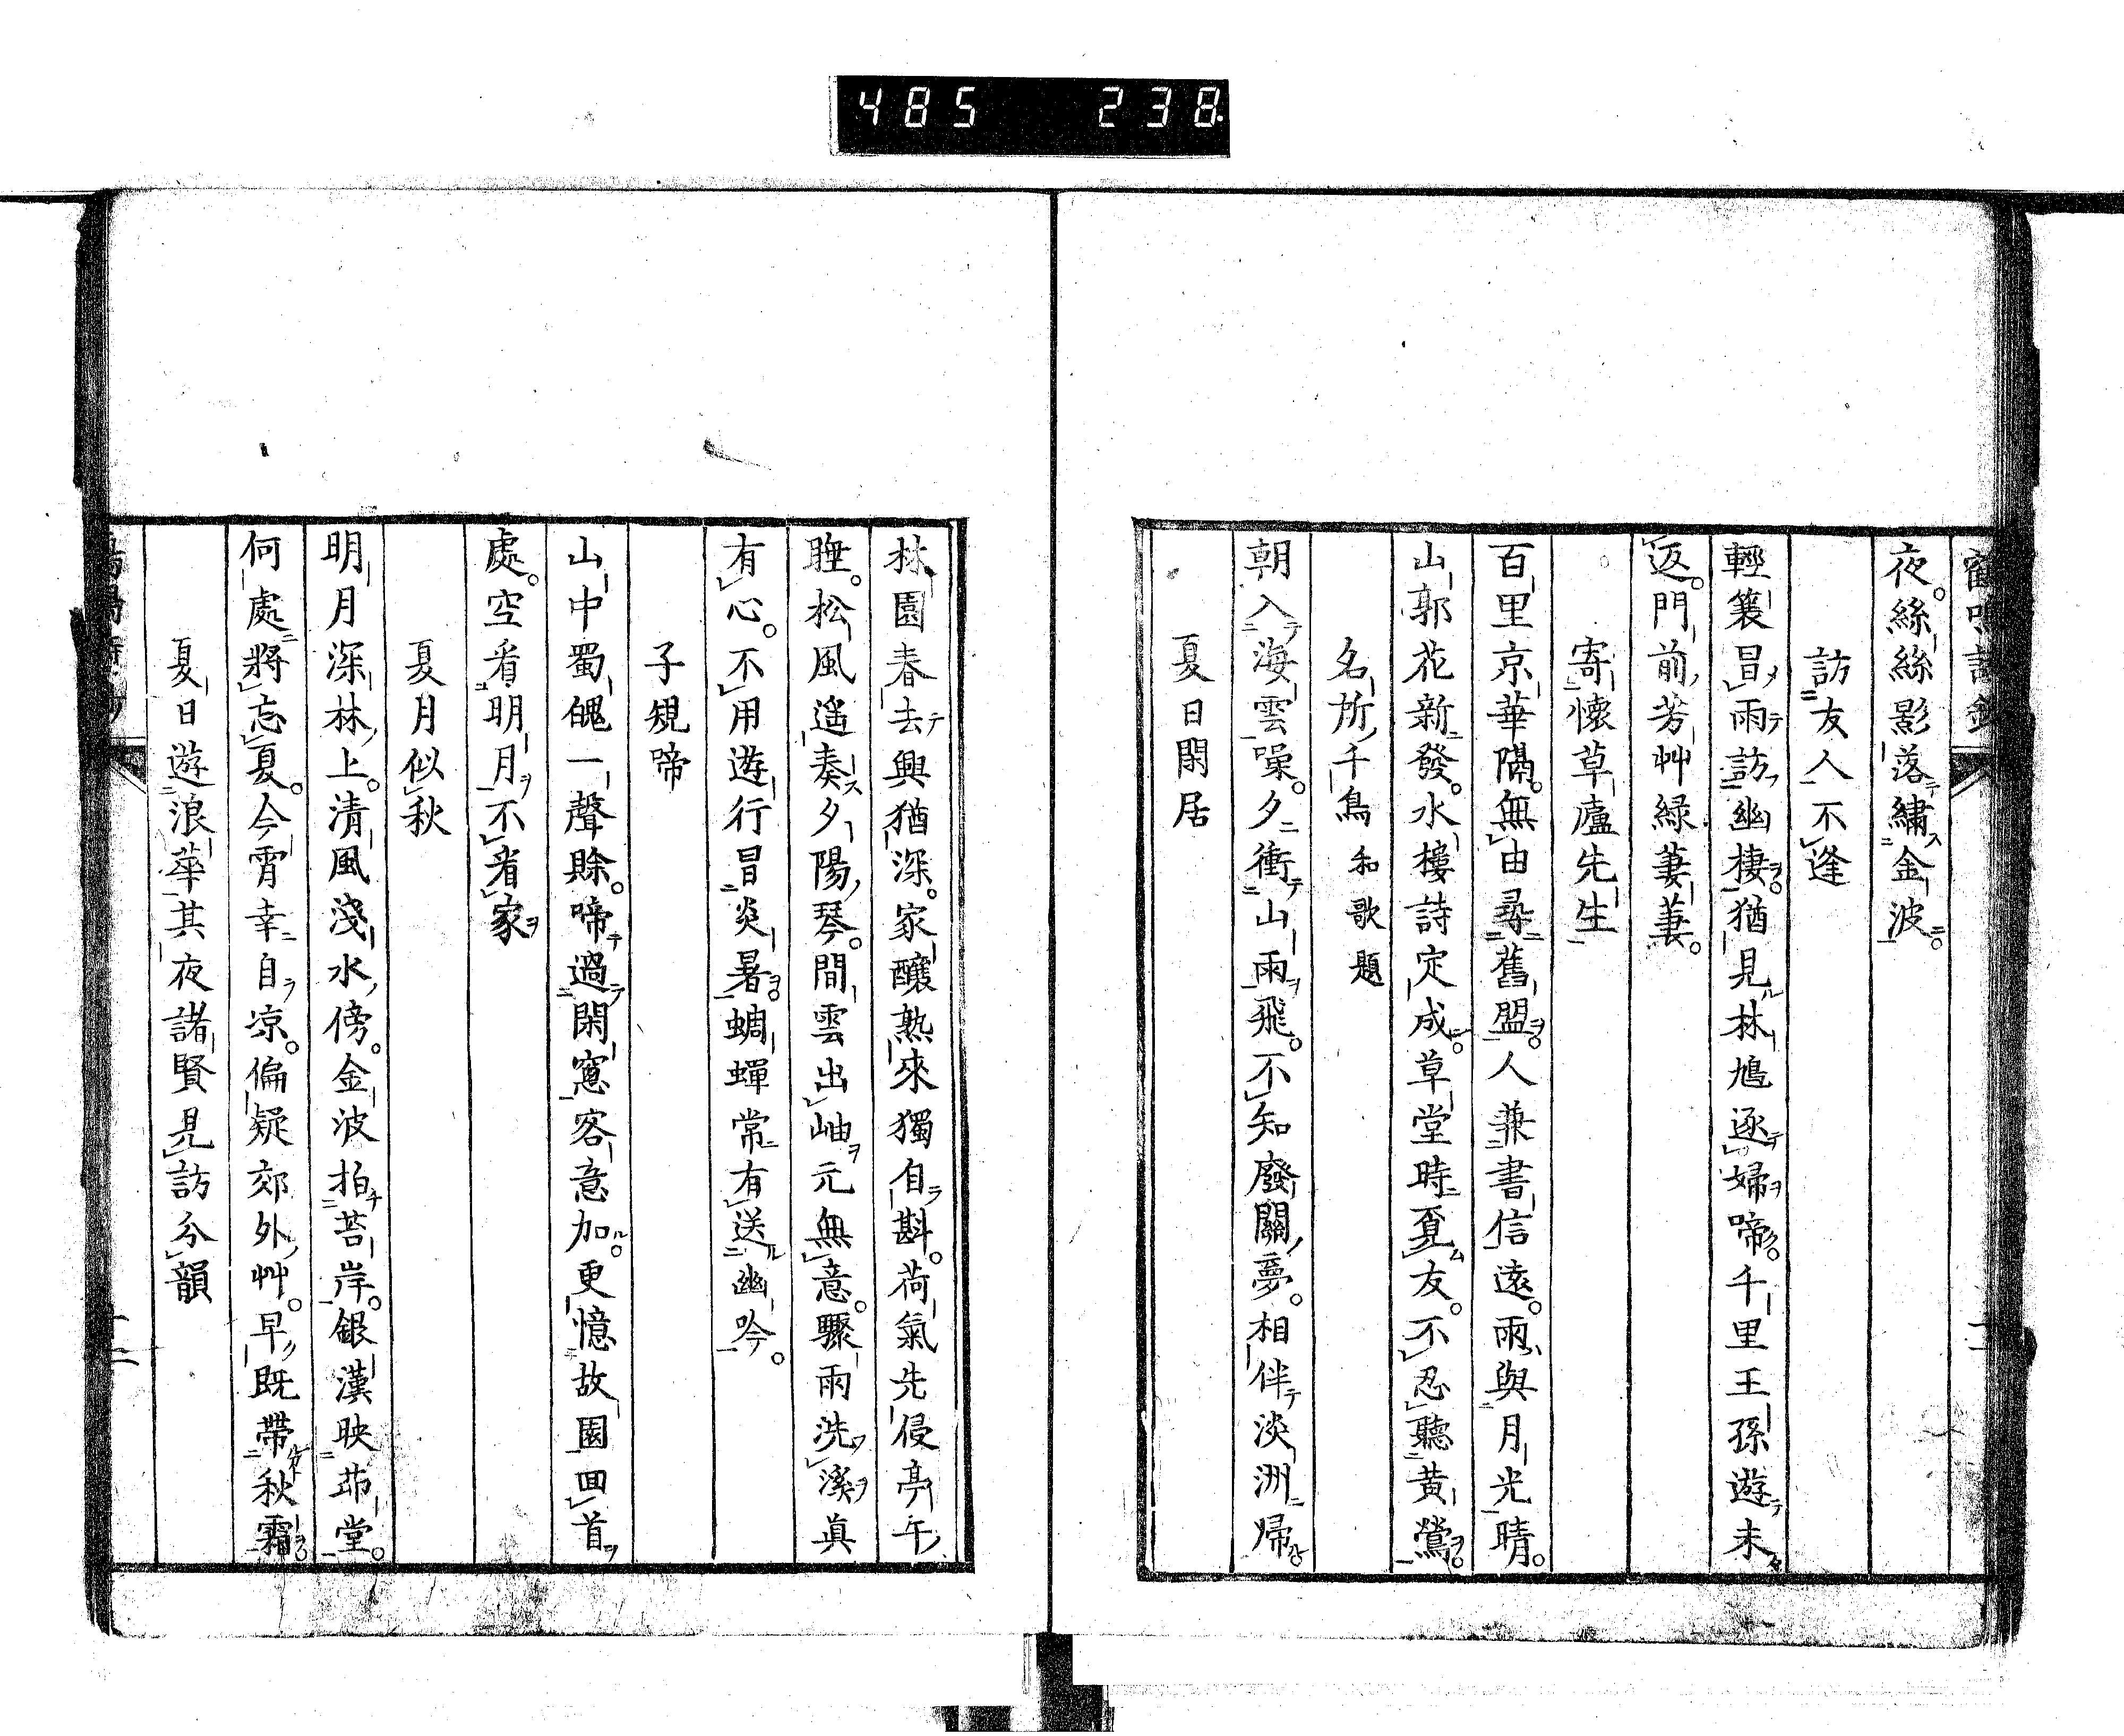 485 238
夜。絲絲影落繡金波。
訪友人不逢
輕簑冒雨訪幽棲。猶見林鳩逐婦啼。千里王孫遊未
返。門前芳艸綠萋萋。
寄懷草廬先生
百里京華隔。無由尋舊盟。人兼書信遠。雨與月光晴。
山郭花新發。水樓詩定成。草堂時覓友。不忍聽黃鶯。
名所千鳥 和歌題
朝入海雲噪。夕衝山雨飛。不知廢關夢。相伴淡洲歸
夏日閑居
林園春去興猶深。家釀熟來獨自斟。荷氣先侵亭午
睡。松風遙奏夕陽琴。間雲出岫元無意。驟雨洗溪眞
有心。不用遊行冒炎暑。蜩蟬常有送幽吟。
子規啼
山中蜀魄一聲賒。啼過閑窓客意加。更憶故園回首
處。空看明月不看家
夏月似秋
明月深林上。清風淺水傍。金波拍苔岸。銀漢映茆堂。
何處將忘夏。今宵幸自凉。偏疑郊外艸。早既帶秋霜。
夏日遊浪華其夜諸賢見訪分韻